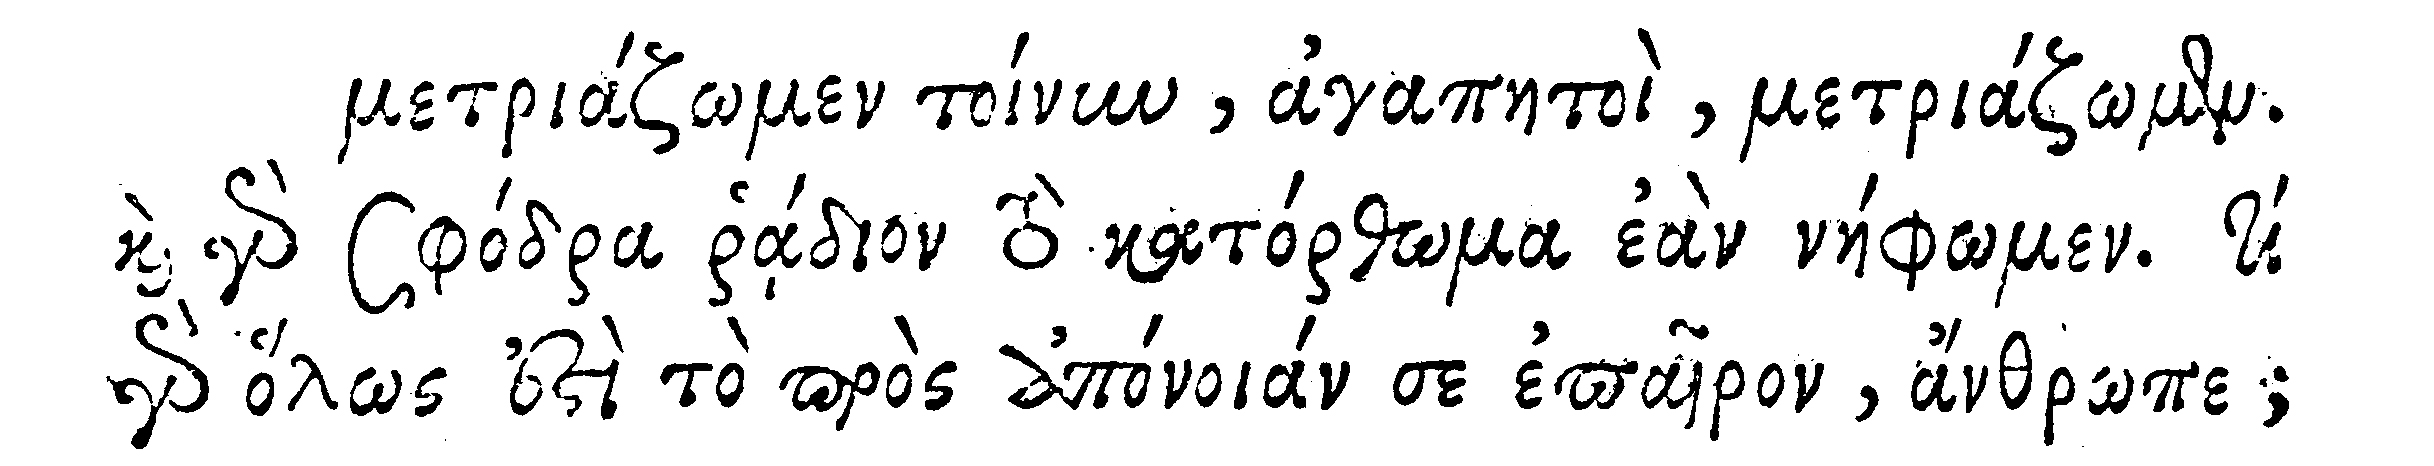 μετριάζωμεν τοίνυν, ἀγαπητοὶ, μετριάζωμεν.
καὶ γὰρ σφόδρα ῥᾴδιον τὸ κατόρθωμα ἐὰν νήφωμεν. τί
γὰρ ὅλως ἐστὶ τὸ πρὸς ἀπόνοιάν σε ἐπαῖρον, ἄνθρωπε;